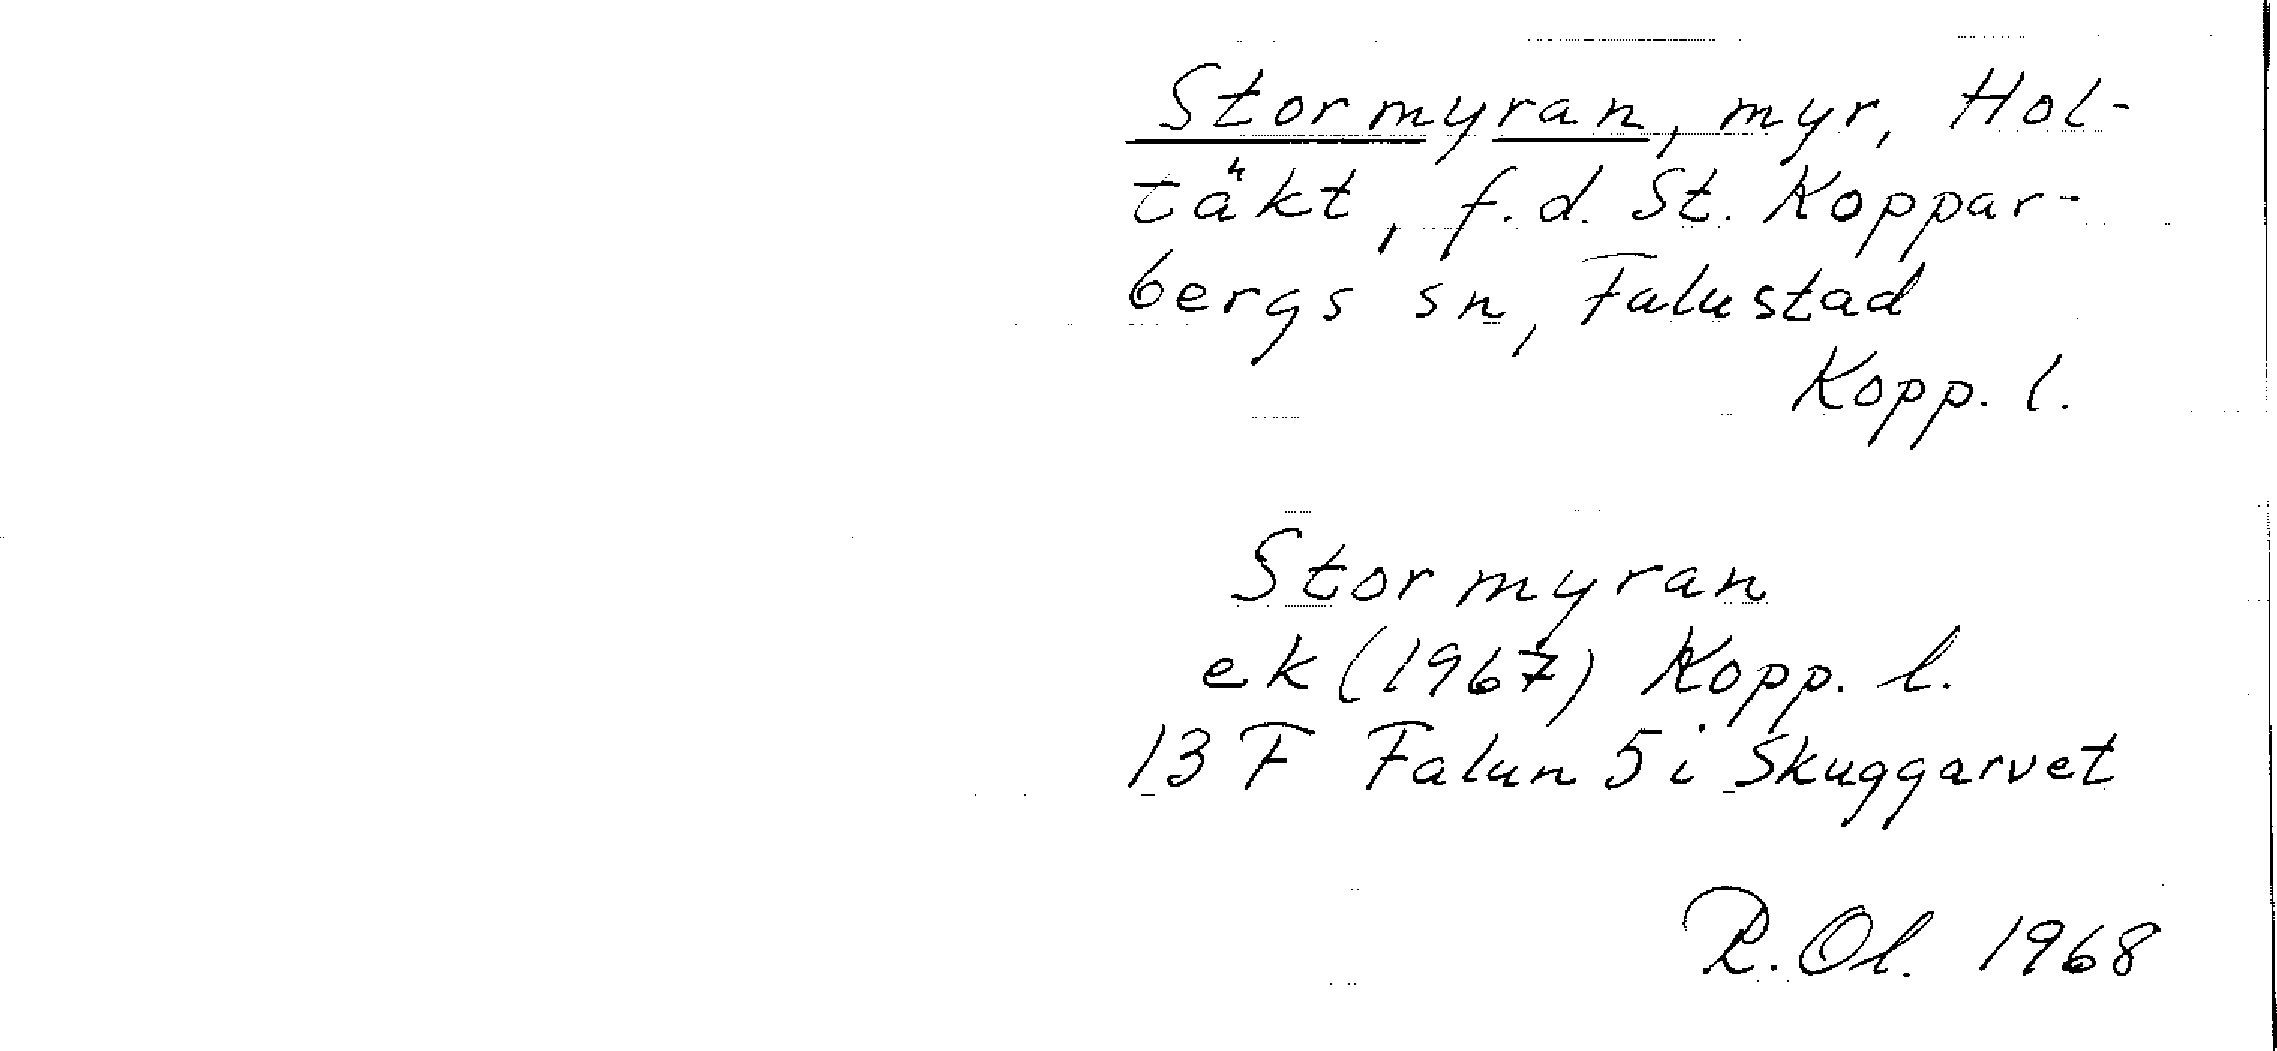 Stormyran, myr, Hol-
täkt, f.d. St. Koppar-
bergs sn, Falu stad
Kopp. l.
Stormyran
ek (1967) Kopp. l.
13 F Falun 5 i Skuggarvet
R. Ol. 1968